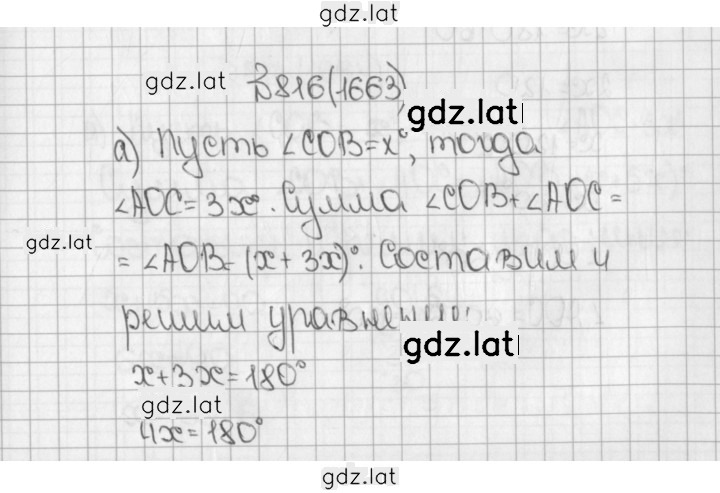 gdz.lat
gdz.lat
№ 816 (1663)
gdz.lat
а) Пусть ∠COB = x°, тогда
∠AOC = 3x°. Сумма ∠COB + ∠AOC =
gdz.lat
= ∠AOB = (x + 3x)°. Составим и
решим уравнение:
gdz.lat
x + 3x = 180°
gdz.lat
4x = 180°
gdz.lat